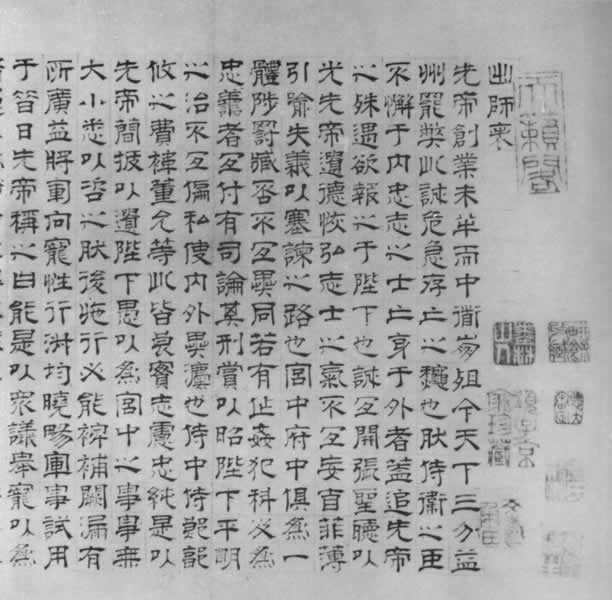 天籟閣
出師表
先帝創業未半而中衜崩殂今天下三分益
州罷弊此誠危急存亡之龝也肰侍衛之臣
不懈于內忠志之士亡身于外者蓋追先帝
之殊遇欲報之于陛下也誠宜開張聖聽以
光先帝遺德恢弘志士之氣不宜妄自菲薄
引喻失義以塞諫之路也宮中府中俱為一
體陟罰臧否不宜異同若有作姦犯科及為
忠善者宜付有司論其刑賞以昭陛下平明
之治不宜偏私使內外異灋也侍中侍郎郭
攸之費褘董允等此皆良實志慮忠純是以
先帝簡拔以遺陛下愚以為宮中之事事無
大小悉以咨之肰後施行必能裨補闕漏有
所廣益將軍向寵性行淑均曉暢軍事試用
于昔日先帝稱之曰能是以眾議舉寵以為
項子京家珍藏